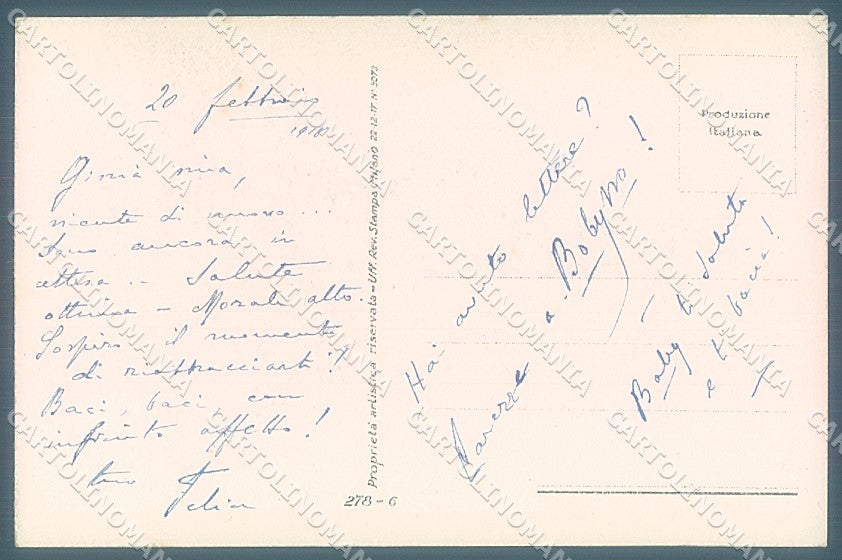 20 febbraio
1918
mia,
niente di nuovo ...
Sono ancora in
attesa .. Salute
ottima - Morale alto.
Sospiro il momento
di riabbracciarti!
Baci, baci, con
infinito affetto!
tuo
Proprietà artistica riservata - Uff. Rev. Stampa Milano 22-12-17 N° 3073
278-6
Produzione
Italiana
Hai avuto lettere?
a Boby no!
Baby ti saluta
e ti bacia!
CARTOLINOMANIA